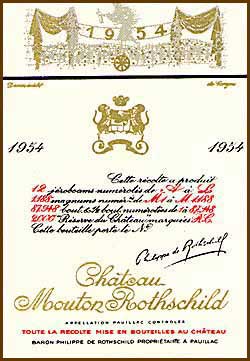 1954
1954 1954
Cette récolte a produit
12 jéroboams numérotés de A à L
1188 magnums numér.ᵗ de M 1 à M 1188
87.948 bout. & ½ bout. numérotées de 1 à 87.948
2000 "Réserve du Château" marquées R.C.
Cette bouteille porte le N.º
Philippe de Rothschild
Château
Mouton Rothschild
APPELLATION PAUILLAC CONTROLÉE
TOUTE LA RÉCOLTE MISE EN BOUTEILLES AU CHÂTEAU
BARON PHILIPPE DE ROTHSCHILD PROPRIÉTAIRE A PAUILLAC